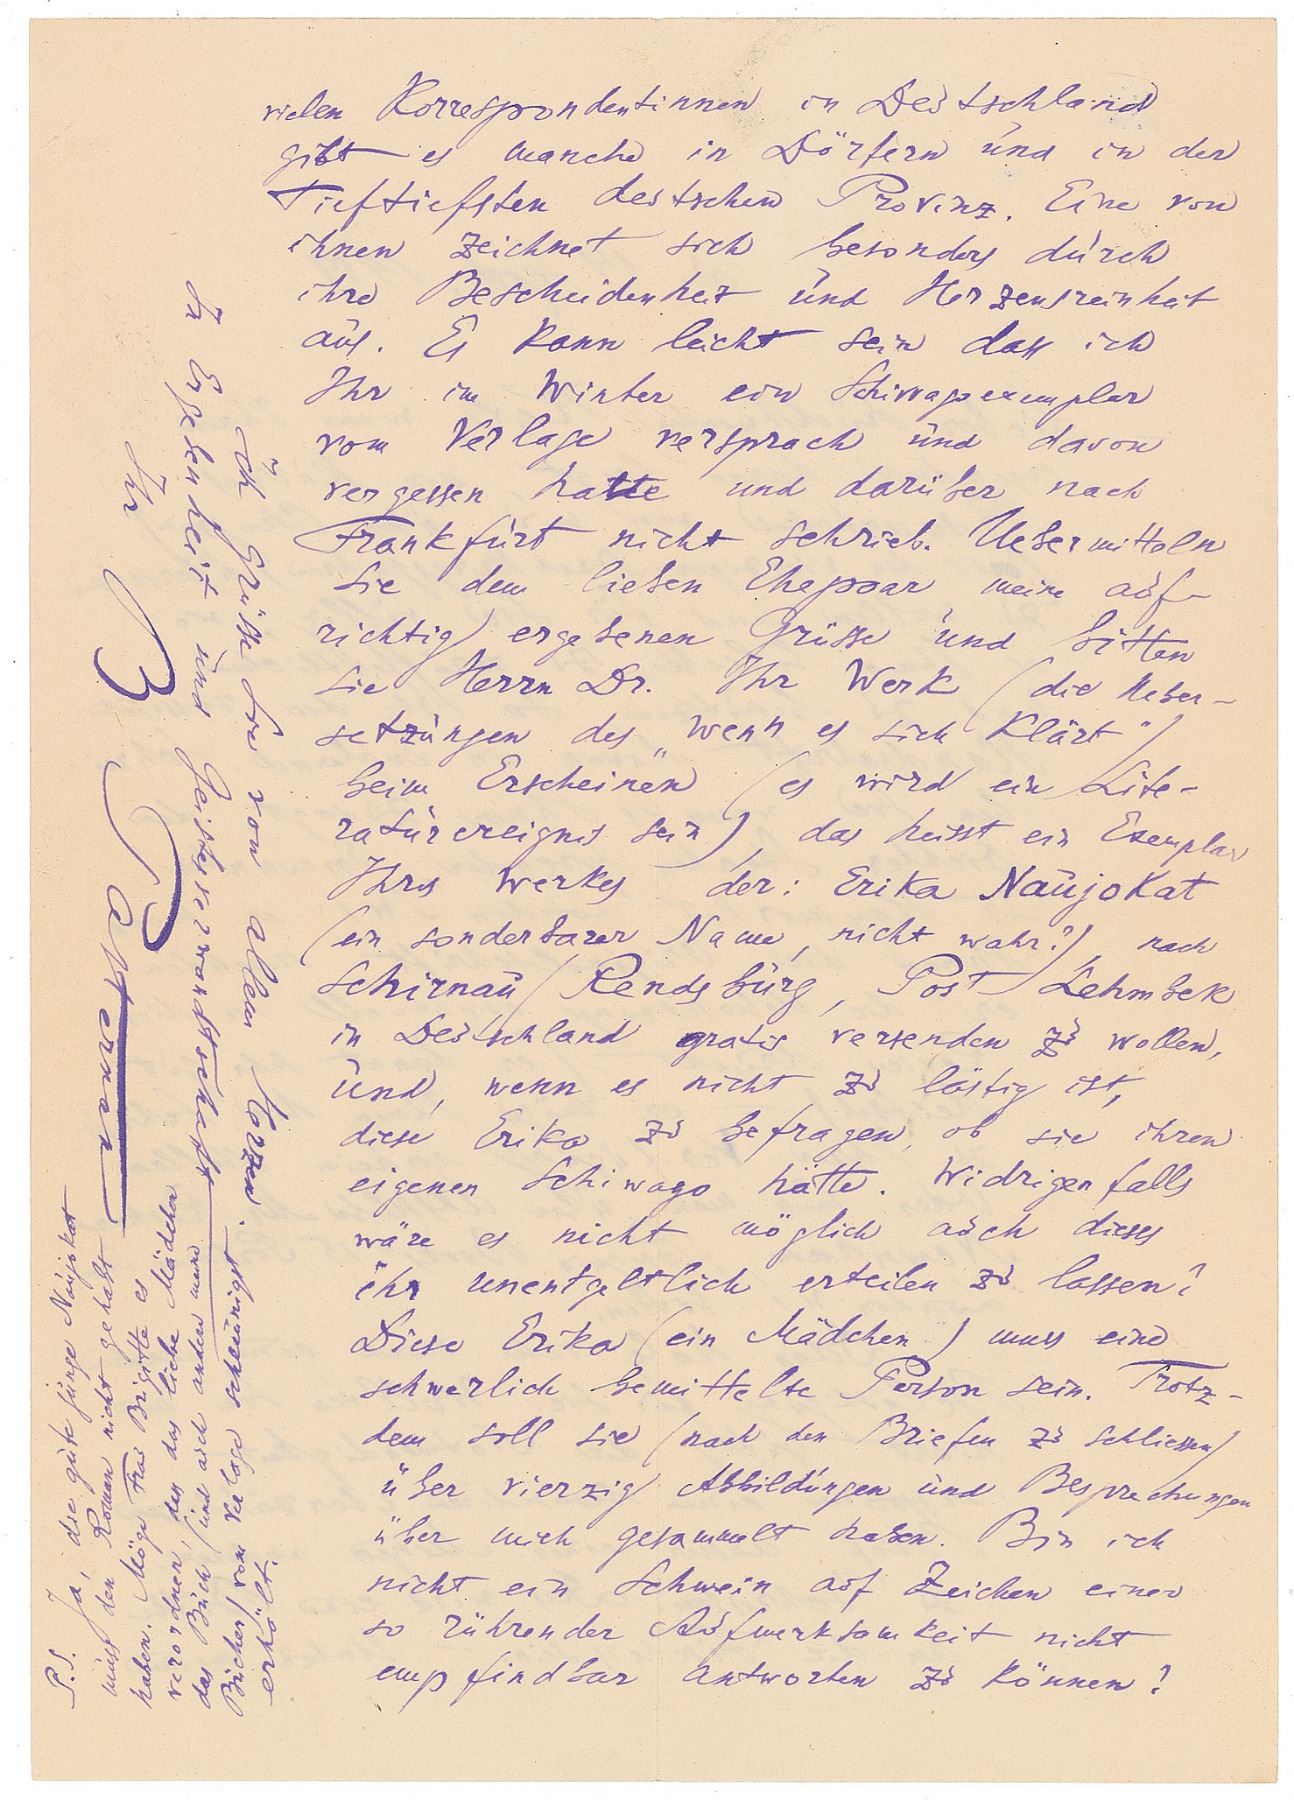 vielen Korrespondentinnen in Deutschland
gibt es manche in Dörfern und in der
Tieftiefsten deutschen Provinz. Eine von
ihnen zeichnet sich besonders durch
ihre Bescheidenheit und Herzensreinheit
aus. Es kann leicht sein dass ich
Ihr im Winter ein Schiwagoexemplar
vom Verlage versprach und davon
vergessen hatte und darüber nach
Frankfurt nicht schrieb. Uebermitteln
Sie dem lieben Ehepaar meine auf-
richtig ergebenen Grüsse und bitten
Sie Herrn Dr. Ihr Werk (die Ueber-
setzungen des „Wenn es sich Klärt")
beim Erscheinen (es wird ein Lite-
raturereignis sein), das heisst ein Exemplar
Ihres Werkes der: Erika Naujokat
(ein sonderbarer Name, nicht wahr?), nach
Schirnau / Rendsburg, Post Lehmbek
in Deutschland gratis versenden zu wollen,
und, wenn es nicht zu lästig ist,
diese Erika zu befragen, ob sie ihren
eigenen Schiwago hätte. Widrigenfalls
wäre es nicht möglich auch dieses
ihr unentgeltlich erteilen zu lassen?
Diese Erika (ein Mädchen) muss eine
schwerlich bemittelte Person sein. Trotz-
dem soll sie (nach den Briefen zu schliessen)
über vierzig Abbildungen und Besprechungen
über mich gesammelt haben. Bin ich
nicht ein Schwein auf Zeichen einer
so rührender Aufmerksamkeit nicht
empfindbar antworten zu können?
ich grüße Sie von allem Herzen.
In Ergebenheit und Geistesverwandtschaft
Ihr
B Pasternak
P.S. Ja, die gute junge Naujokat
muss den Roman nicht gehabt
haben. Möge Frau Brigitte es
verordnen, das das liebe Mädchen
das Buch (und auch andere meine
Bücher) vom Verlage schleunigst
erhält.